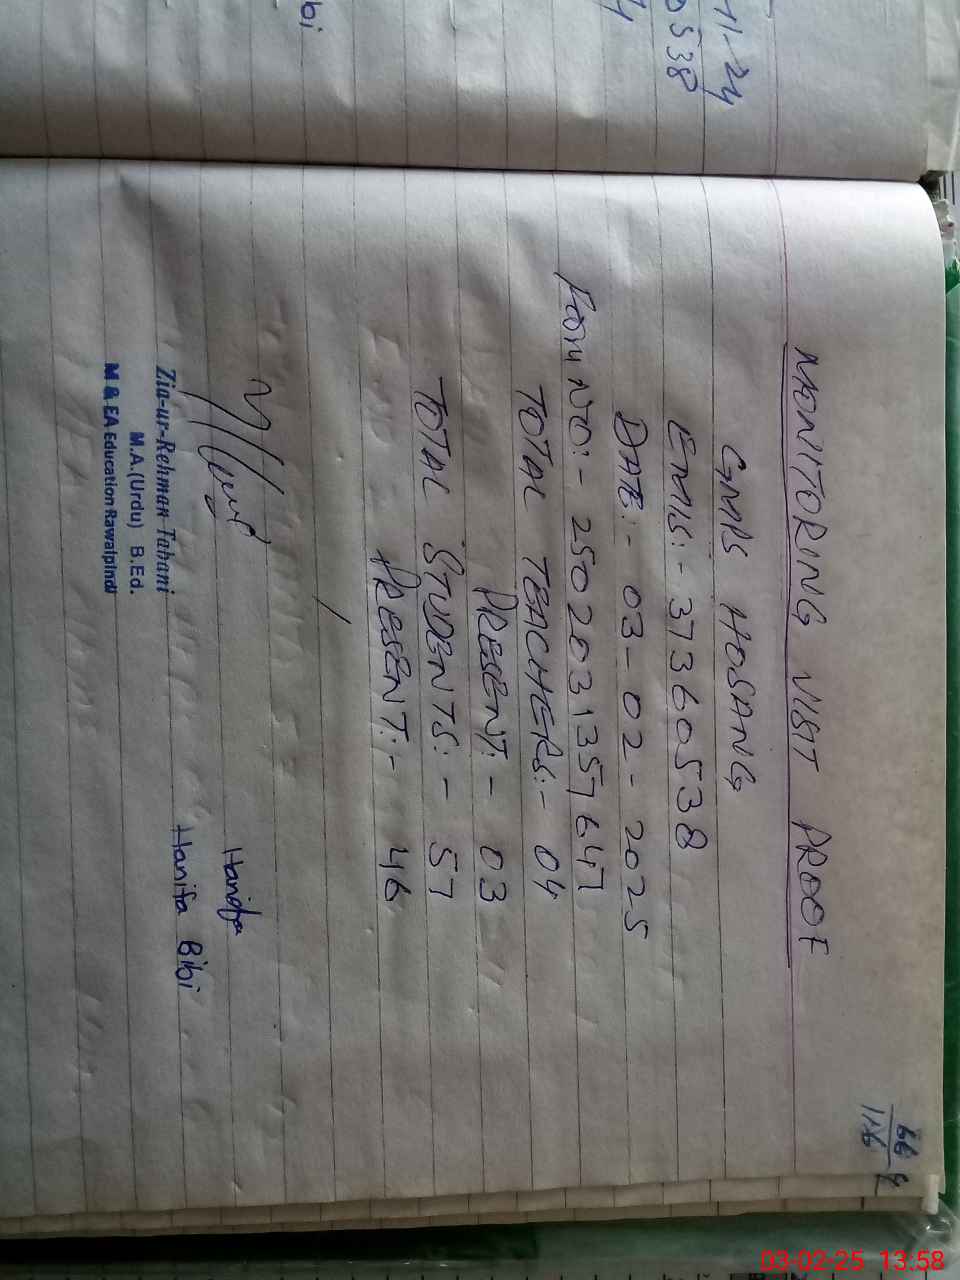 -11-24
0538
bi
MONITORING VISIT PROOF
GMPS HOSANG
EMIS:- 37360538
DATE:- 03-02-2025
NO:- 2502031357647
TOTAL TEACHERS:- 04
PRESENT:- 03
TOTAL STUDENTS:- 57
PRESENT:- 46
Zia-ur-Rehman Tabani
M.A.(Urdu) B.Ed.
M & EA Education Rawalpindi
Hanifa
Hanifa Bibi
03-02-25 13:58